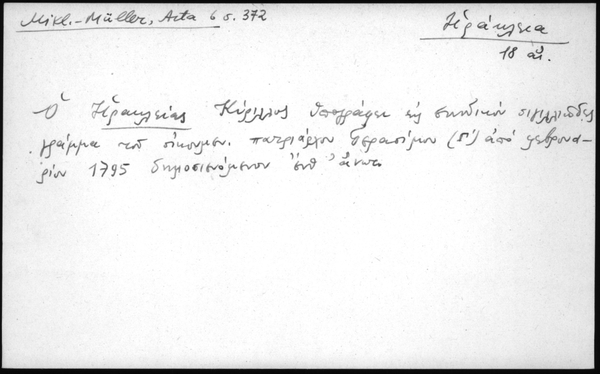 Mikl.-Müller, Acta 6 σ. 372
Ἡράκλεια
18 αἰ.
Ὁ Ἡρακλείας Κύριλλος ὑπογράφει εἰς συνοδικόν σιγιλλιῶδες
γράμμα τοῦ οἰκουμεν. πατριάρχου Γερασίμου (Γ΄) ἀπό φεβρουα-
ρίου 1795 δημοσιευόμενον ἔνθ᾽ ἄνωτ.